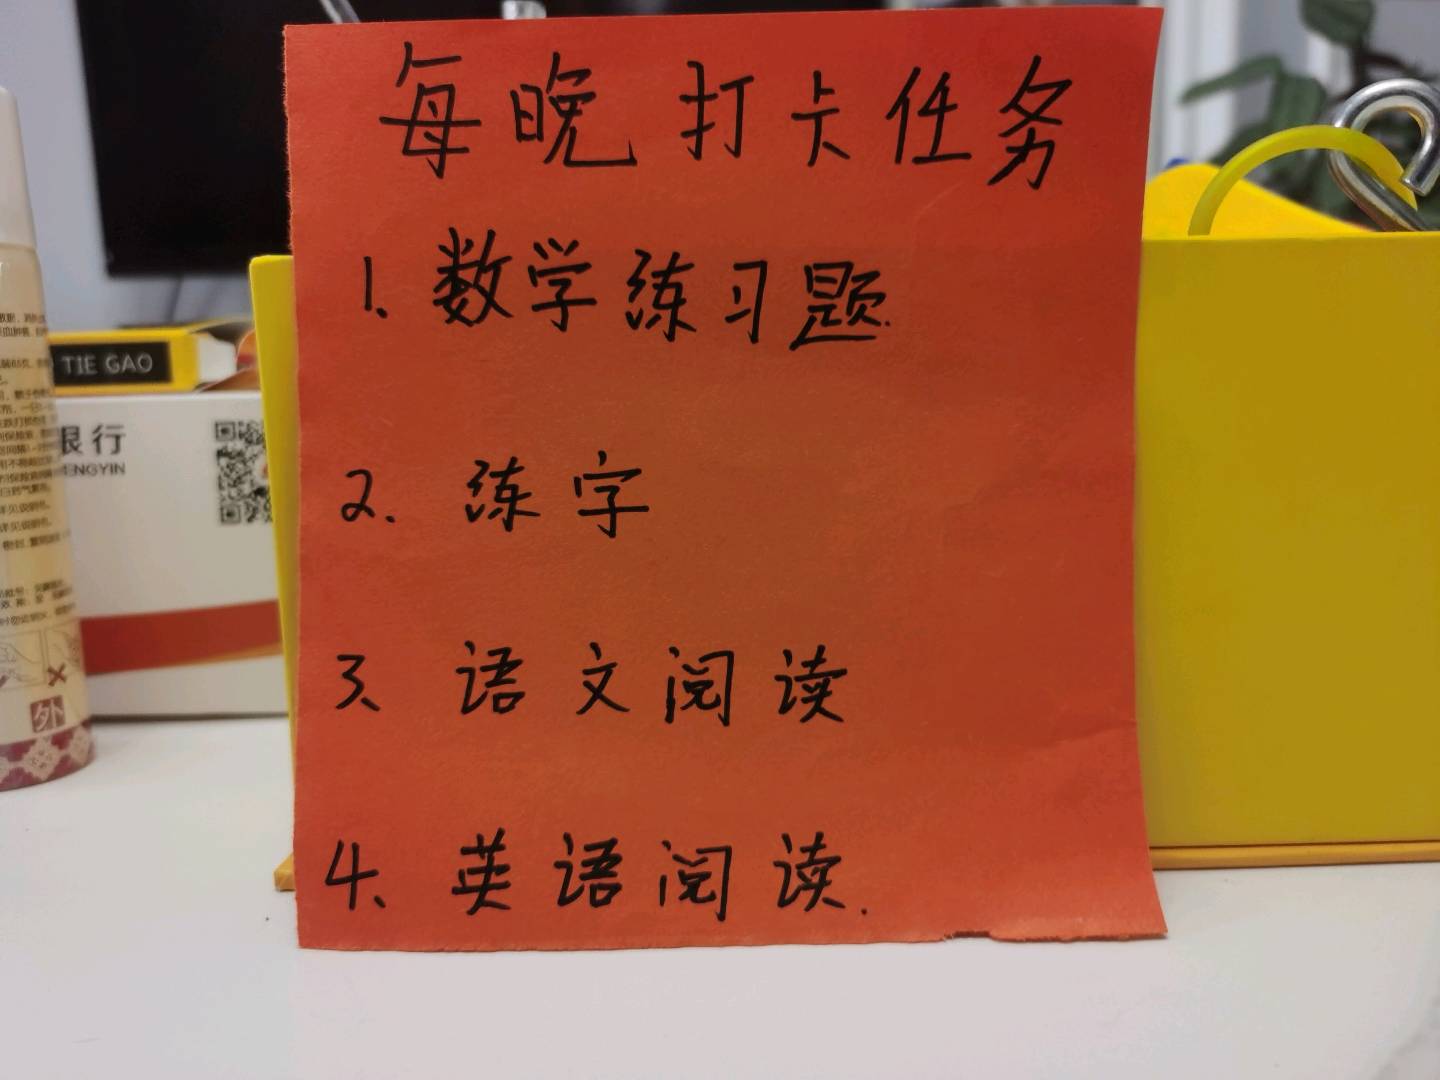 每晚打卡任务
1.数学练习题.
2.练字
3、语文阅读
4、英语阅读.
TIE GAO
银行
外